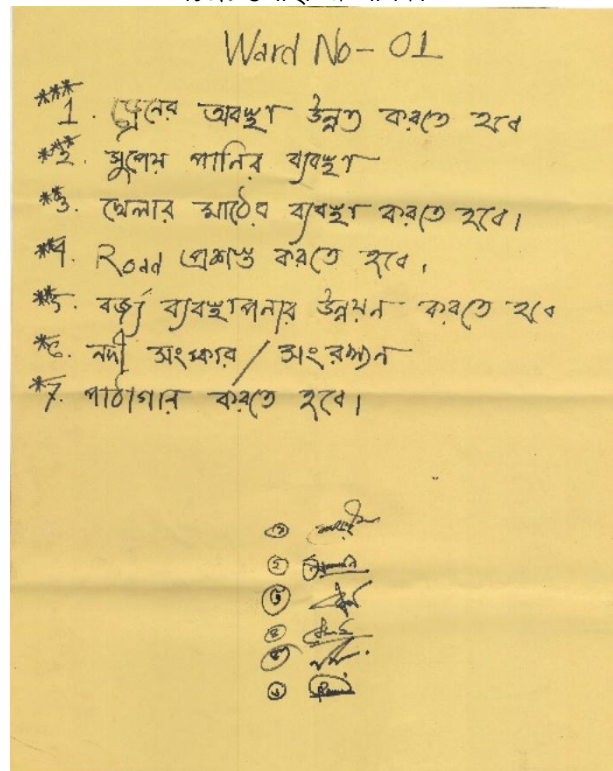 Ward No- 01
*** 1. ড্রেনের অবস্থা উন্নত করতে হবে
*** 2. সুপেয় পানির ব্যবস্থা
** 3. খেলার মাঠের ব্যবস্থা করতে হবে।
** 4. Road প্রশস্ত করতে হবে।
** 5. বর্জ্য ব্যবস্থাপনার উন্নয়ন করতে হবে
* ৬. নদী সংস্কার / সংরক্ষন
* 7. পাঠাগার করতে হবে।
১
২
৩
৪
৫
৬